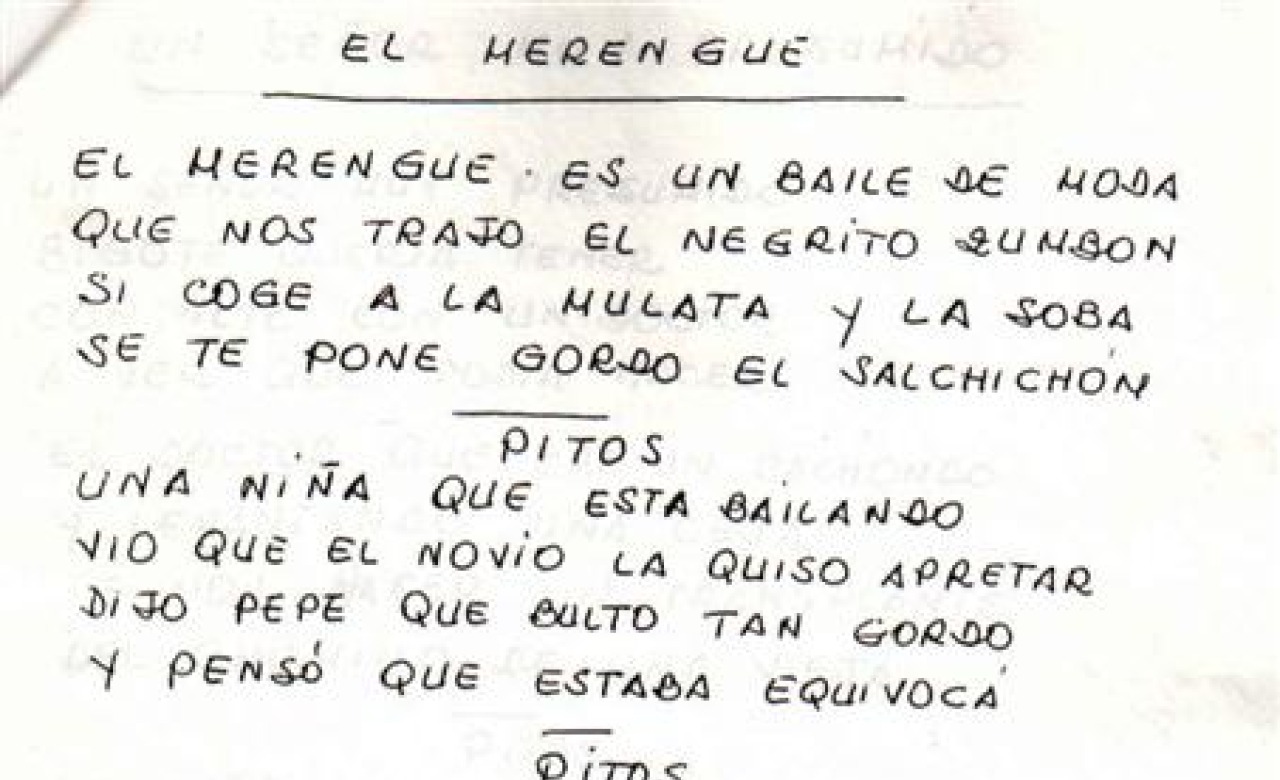 EL MERENGUE
EL MERENGUE. ES UN BAILE DE MODA
QUE NOS TRAJO EL NEGRITO ZUMBON
SI COGE A LA MULATA Y LA SOBA
SE TE PONE GORDO EL SALCHICHÓN
PITOS
UNA NIÑA QUE ESTA BAILANDO
VIO QUE EL NOVIO LA QUISO APRETAR
DIJO PEPE QUE BULTO TAN GORDO
Y PENSÓ QUE ESTABA EQUIVOCÁ
PITOS